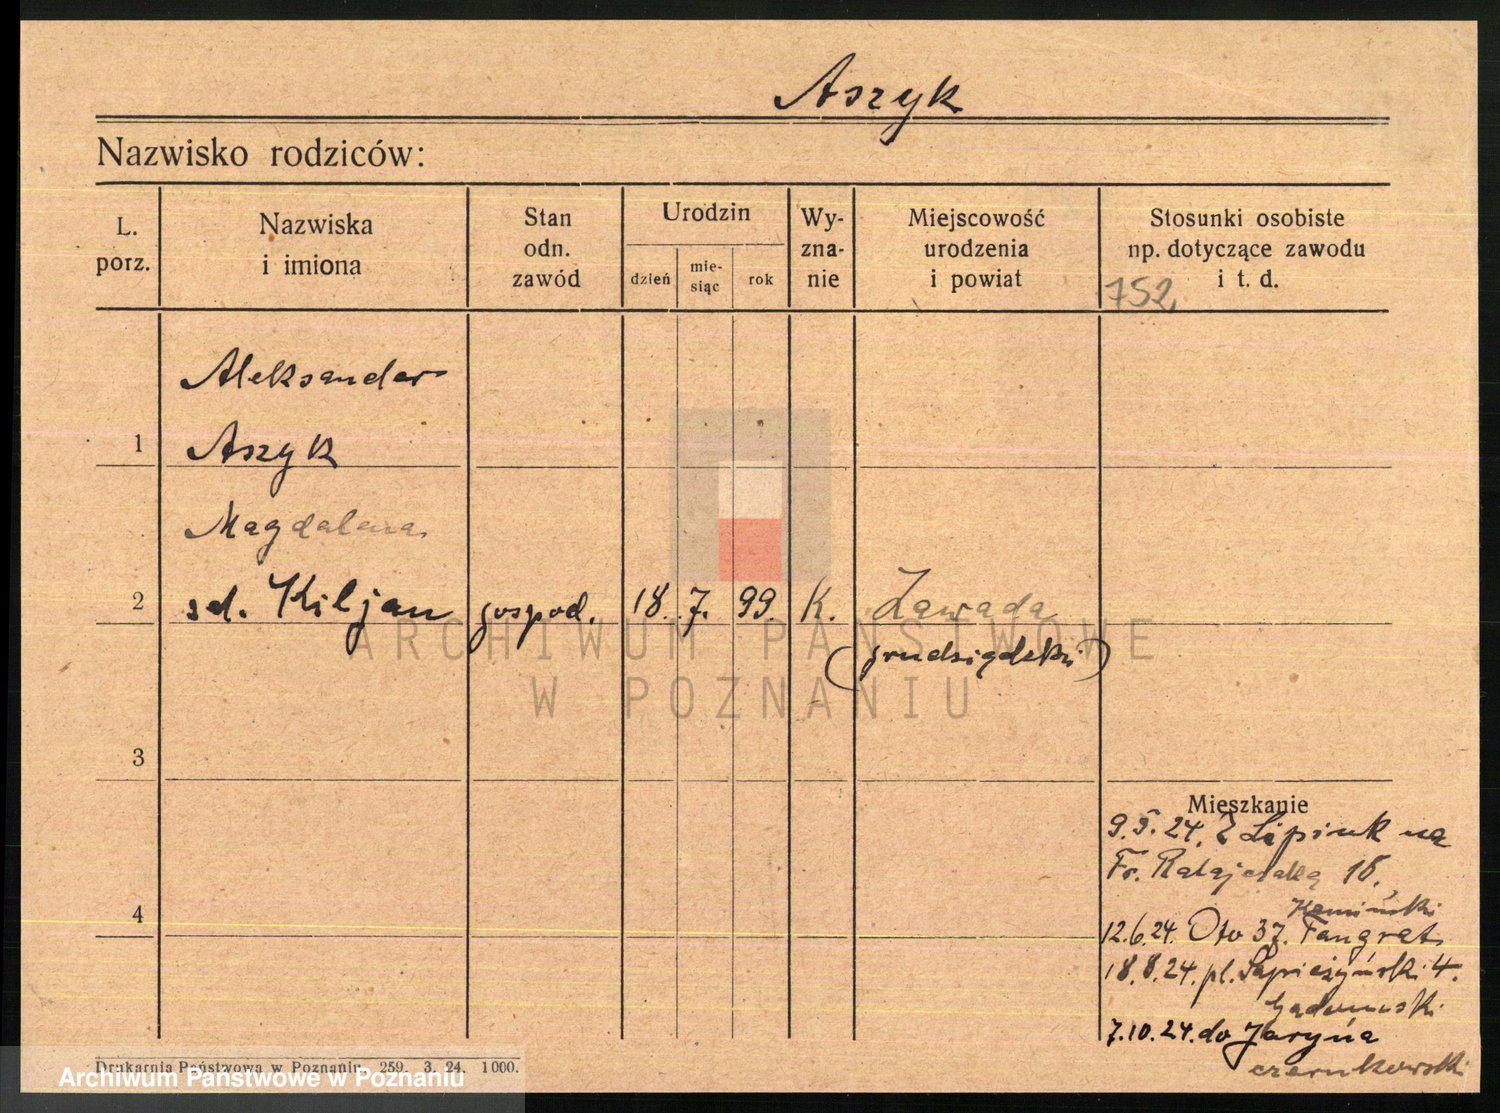 Aszyk
Nazwisko rodziców:
L.
porz.
Nazwiska
i imiona
Stan
odn.
zawód
Urodzin
dzień
mie-
siąc
rok
Wy-
zna-
nie
Miejscowość
urodzenia
i powiat
Stosunki osobiste
np. dotyczące zawodu
i t. d.
752
Aleksander
1 Aszyk
Magdalena
2 sd. Kiljan gospod. 18. 7. 99. K. Zawada
(grudziądzki)
3
Mieszkanie
9.5.24. Z Lipink na
Fr. Ratajczaka 18.
4
Kamiński
12.6.24. Oto 37.
18.8.24. pl. Sapieżyński 4.
7.10.24. do Jaryńa
czarnkowski
Drukarnia Państwowa w Poznaniu 259. 3. 24. 1000.
ARCHIWUM PAŃSTWOWE
W POZNANIU
Archiwum Państwowe w Poznaniu